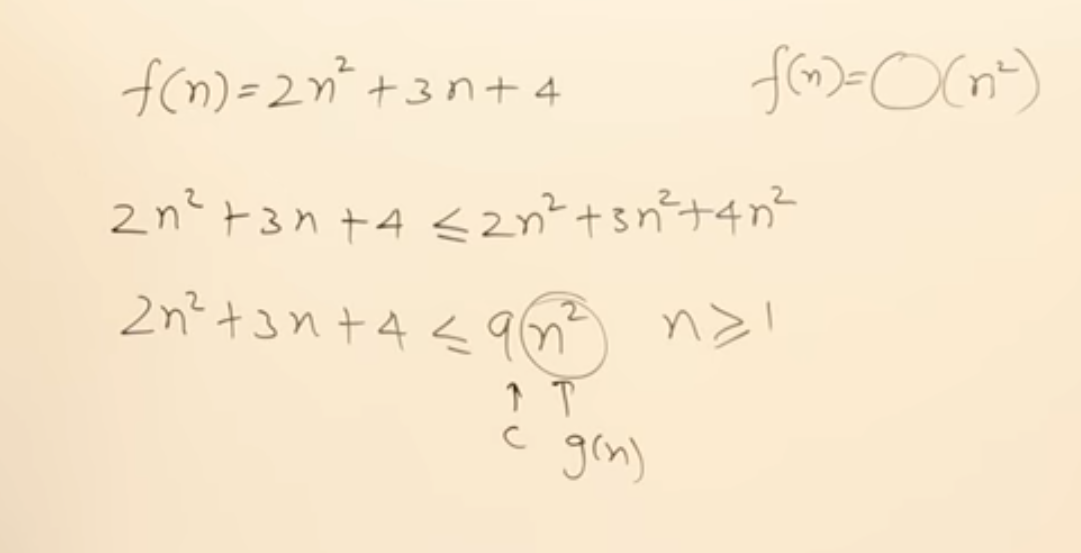 f(n)=2n²+3n+4 f(n)=O(n²)
2n²+3n+4 ≤ 2n²+3n²+4n²
2n²+3n+4 ≤ 9n² n≥1
↑ ↑
c g(n)